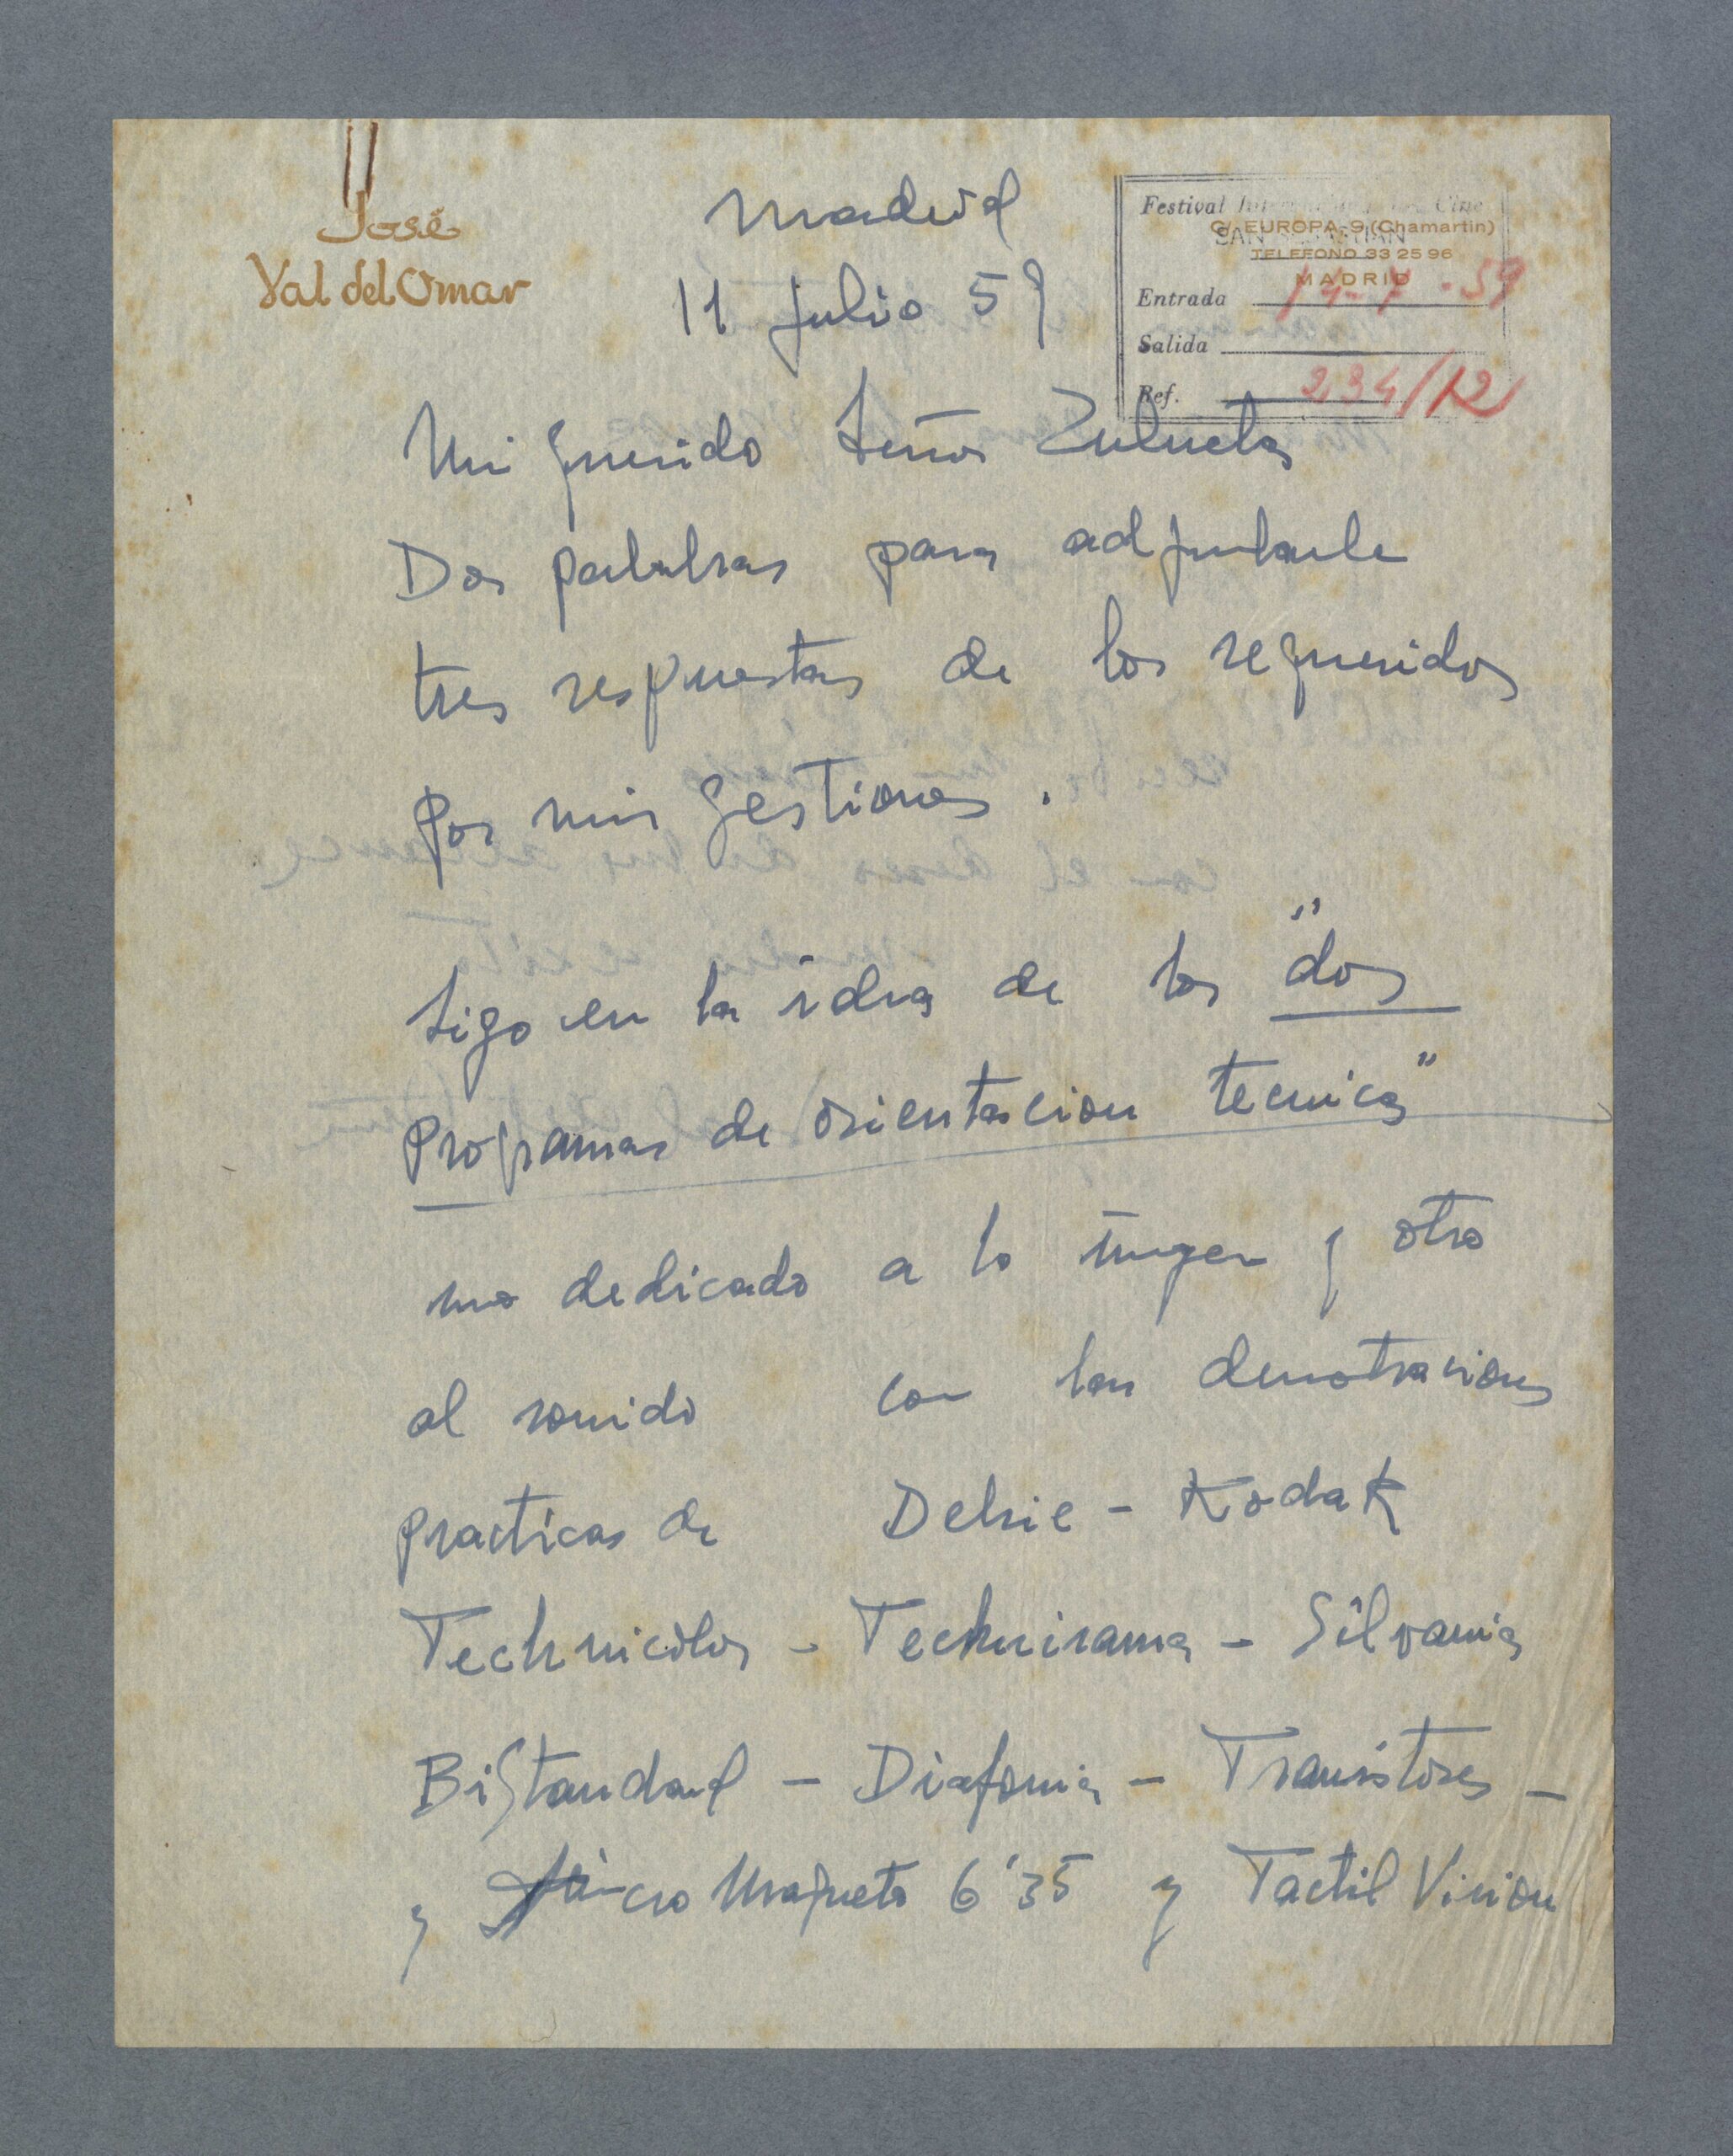 José
Val del Omar
Madrid
11 Julio 59
Festival Internacional del Cine
SAN SEBASTIAN
C/. EUROPA-9 (Chamartin)
TELEFONO 33 25 96
MADRID
Entrada 14-7-59
Salida
Ref. 234/12
Mi querido Señor Zulueta
Dos palabras para adjuntarle
tres respuestas de los requeridos
por mis gestiones.
Sigo en la idea de los "dos
programas de orientacion tecnica"
uno dedicado a la imagen y otro
al sonido con las demostraciones
practicas de Delrie - Kodak
Technicolor - Technirama - Silvania
BiStandard - Diafonia - Transistores -
y Magneto 6'35 y Tactil Vision